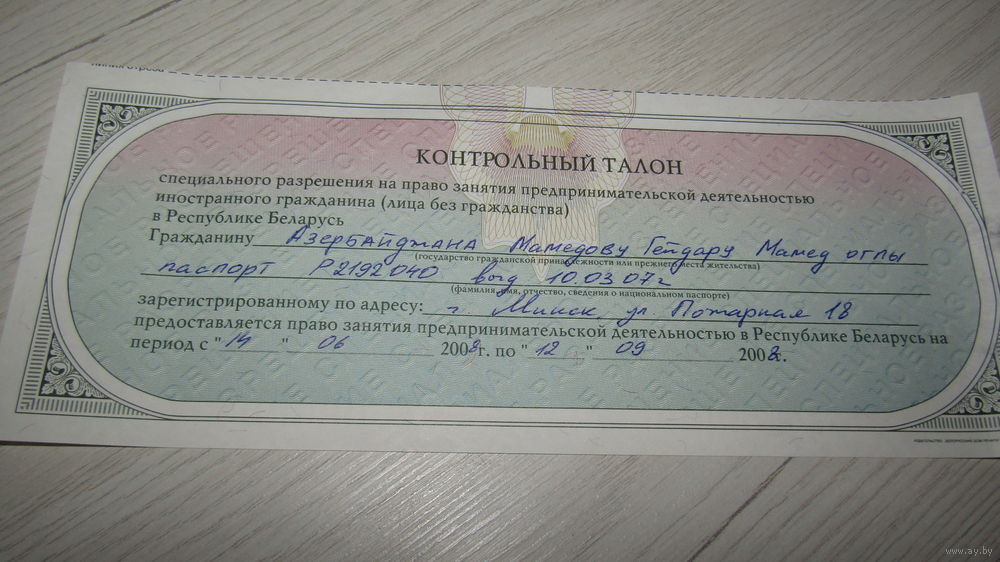 КОНТРОЛЬНЫЙ ТАЛОН
специального разрешения на право занятия предпринимательской деятельностью
иностранного гражданина (лица без гражданства)
в Республике Беларусь
Гражданину Азербайджана Мамедову Гейдару Мамед оглы
(государство гражданской принадлежности или прежнего места жительства)
паспорт Р2192040 выд 10.03.07г
(фамилия, имя, отчество, сведения о национальном паспорте)
зарегистрированному по адресу: г. Минск, ул Пожарная 18
предоставляется право занятия предпринимательской деятельностью в Республике Беларусь на
период с "14" 06 2008г. по "12" 09 2008г.
www.ay.by